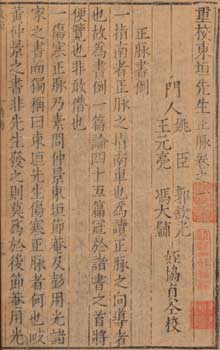 重校東垣先生正脉卷之
門人
姚臣
王元亮
郭欽光
馮大韛
姪協貞仝校
正脉書例
一指南者正脉之指南車也為讀正脉之向導者
也故為書例一篇論四十五篇疏於諸書之首將
便覽也非敢僭也
一傷寒正脉乃素問仲景東垣節菴及彭用光諸
家之書而獨稱曰東垣先生傷寒正脉者何也岐
黃仲景之書非先生發之則莫為於後節菴用光